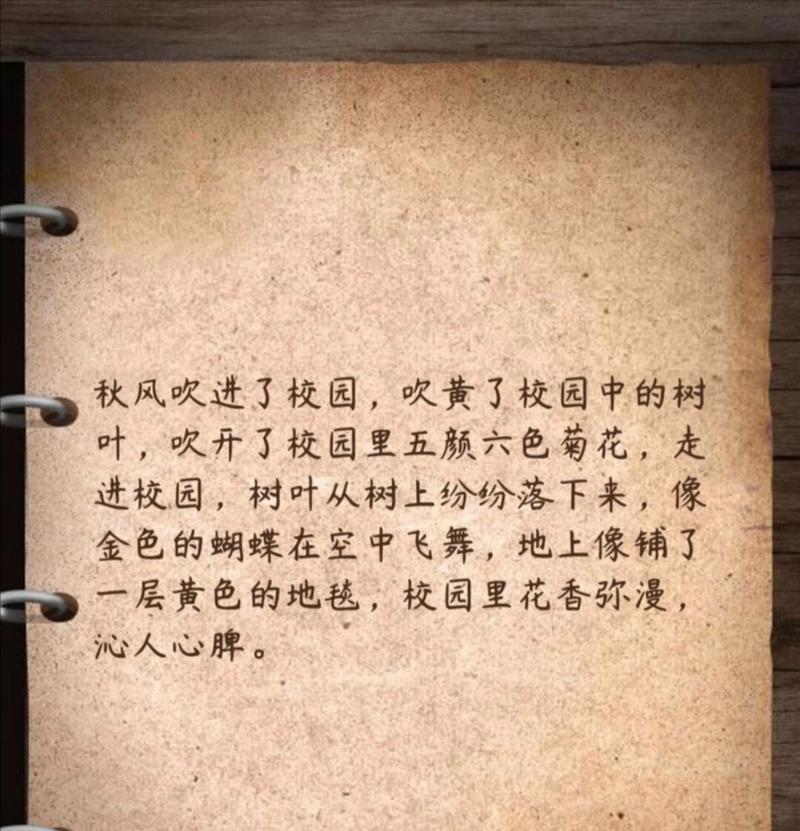 秋风吹进了校园，吹黄了校园中的树
叶，吹开了校园里五颜六色菊花，走
进校园，树叶从树上纷纷落下来，像
金色的蝴蝶在空中飞舞，地上像铺了
一层黄色的地毯，校园里花香弥漫，
沁人心脾。